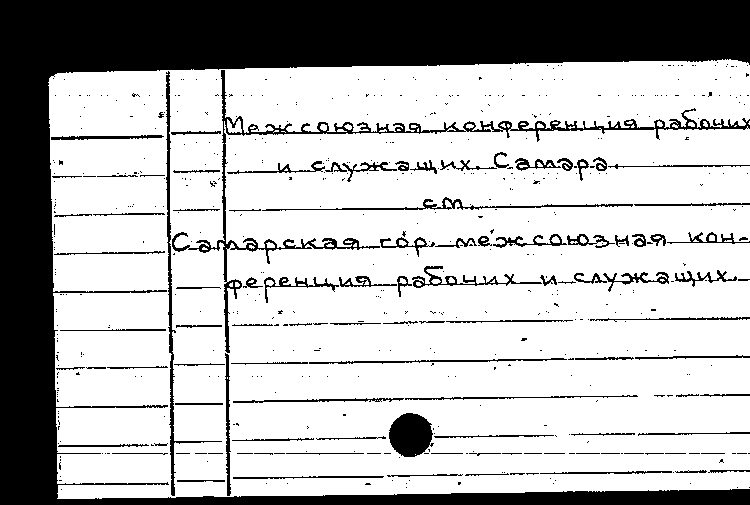 Межсоюзная конференция рабочих
и служащих. Самара.
см.
Самарская гор. межсоюзная кон-
ференция рабочих и служащих.